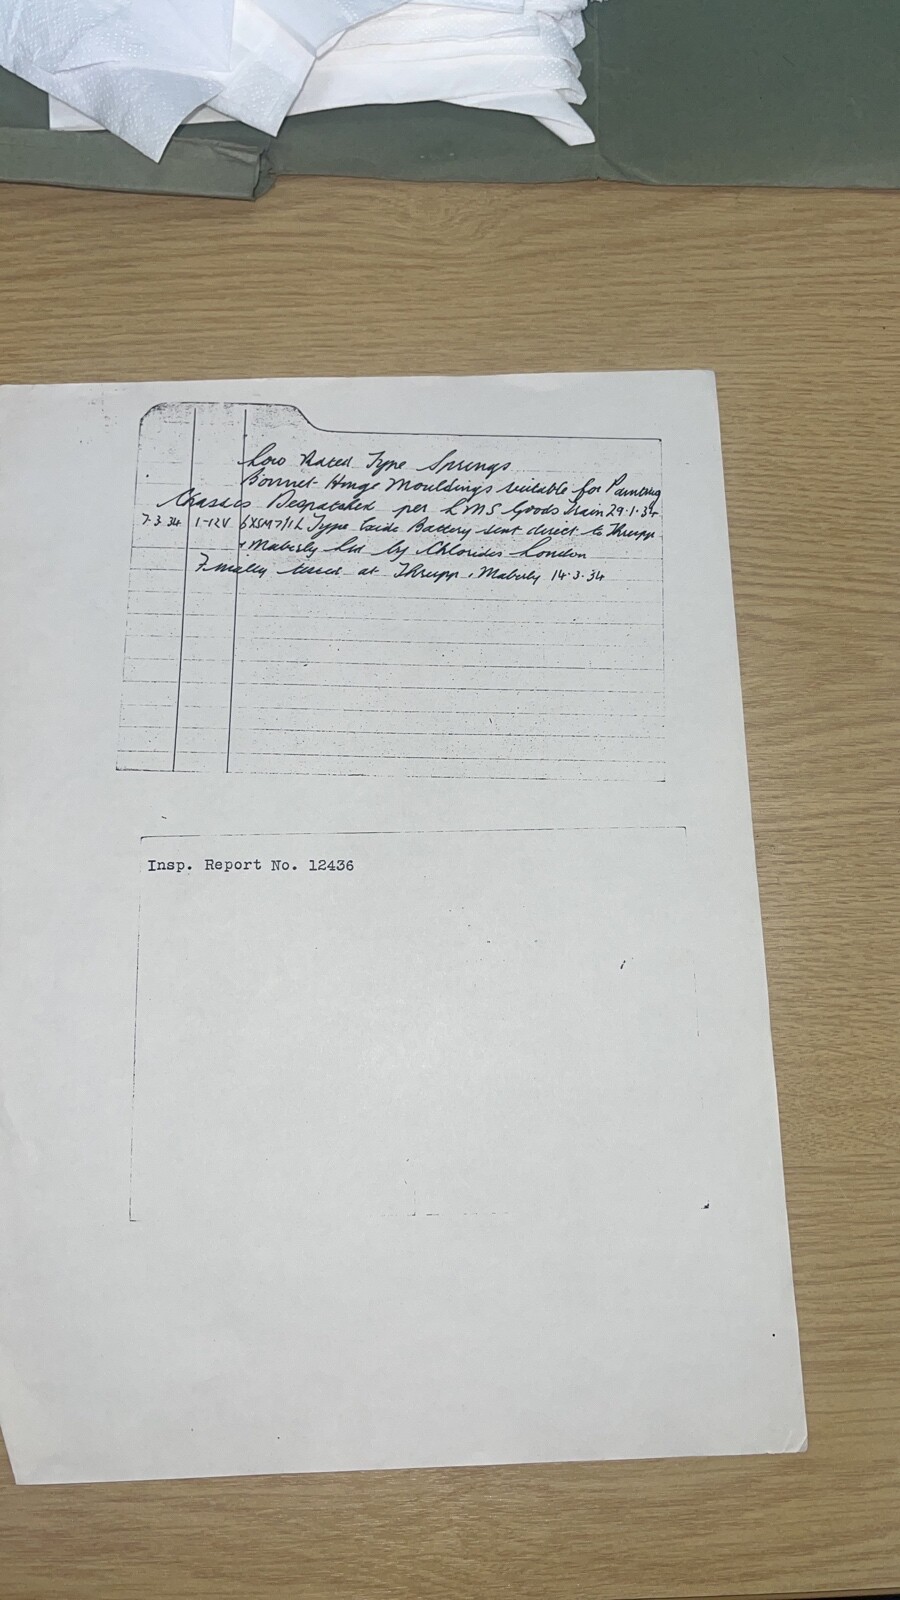 Low Rated Type Springs
Bonnet Hinge Mouldings suitable for Painting
Chassis Despatched per LMS Goods Train 29.1.34
7.3.34 1-12V 6XSM7/1L Type Exide Battery sent direct to Thrupp
& Maberly Ltd by Chlorides London
Finally tested at Thrupp & Maberly 14.3.34
Insp. Report No. 12436